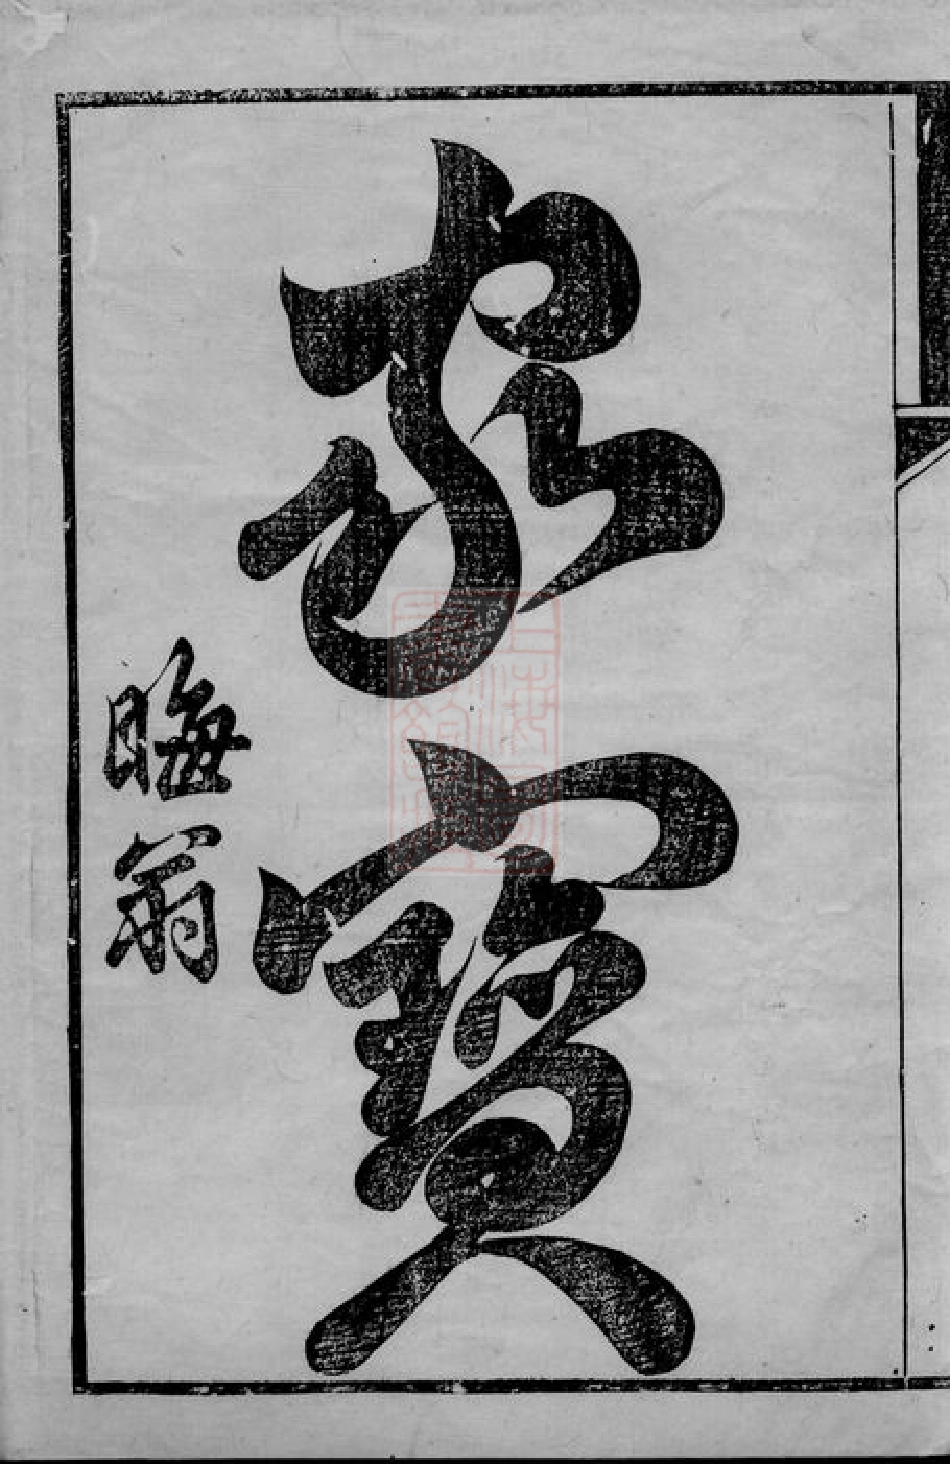 家寶
晦翁